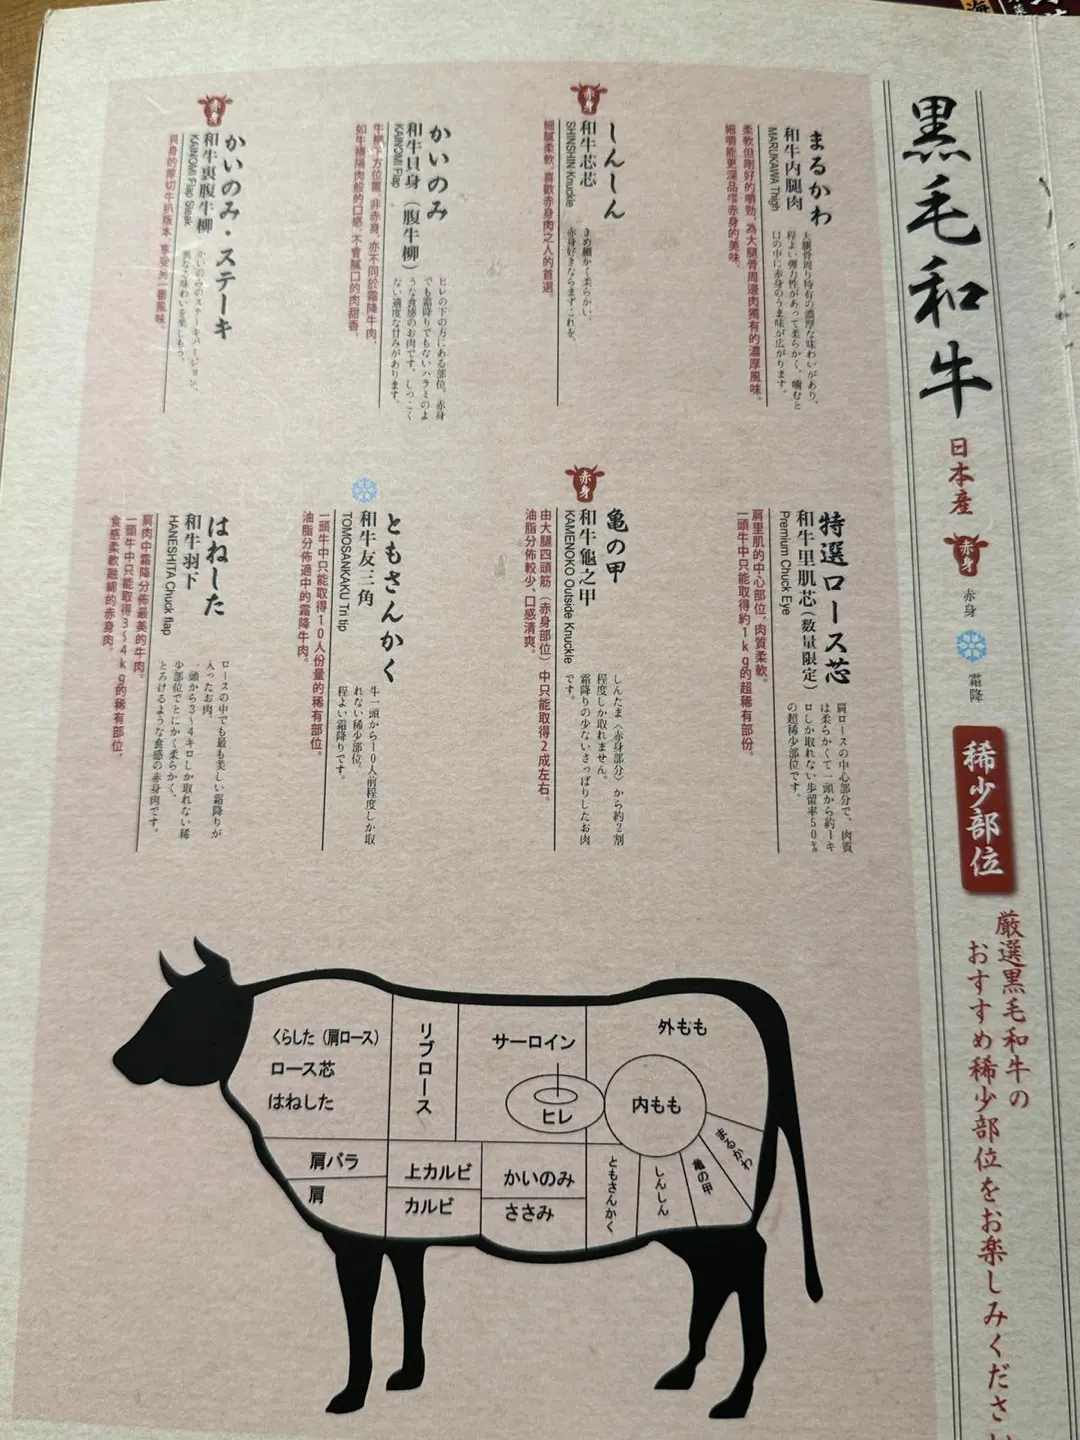 黒毛和牛
日本産
赤身
赤身
霜降
稀少部位
厳選黒毛和牛の
おすすめ稀少部位をお楽しみくださ
まるかわ
和牛内腿肉
MARUKAWA Thigh
大腿骨周り特有の濃厚な味わいがあり、
程よい弾力性があって柔らかく、噛むと
口の中に赤身のうま味が広がります。
柔軟但剛好的嚼勁,為大腿骨周邊肉獨有的濃厚風味。
細嚼能更深品嚐赤身的美味。
赤身
しんしん
和牛芯芯
SHINSHIN Knuckle
きめ細かく柔らかい。
赤身好きならまずこれを。
細膩柔軟,喜歡赤身肉之人的首選。
かいのみ
和牛貝身(腹牛柳)
KAINOMI Flap
ヒレの下の方にある部位。赤身
でも霜降りでもないハラミのよ
うな食感のお肉です。しつこく
ない適度な甘みがあります。
牛柳下方位置,非赤身,亦不同於霜降牛肉。
如牛橫隔肉般的口感,不會膩口的肉甜香。
赤身
かいのみ・ステーキ
和牛裏腹牛柳
KAINOMI Flap Steak
かいのみのステーキバージョン、
異なる味わいを楽しもう。
貝身的厚切牛扒版本,享受另一番風味。
特選ロース芯
和牛里肌芯(数量限定)
Premium Chuck Eye
肩ロースの中心部分で、肉質
は柔らかくて一頭から約一キ
ロしか取れない歩留率50%
の超稀少部位です。
肩里肌的中心部位,肉質柔軟。
一頭牛中只能取得約1kg的超稀有部份。
赤身
亀の甲
和牛龜之甲
KAMENOKO Outside Knuckle
しんたま(赤身部分)から約2割
程度しか取れません。
霜降りの少ないさっぱりしたお肉
です。
由大腿四頭筋(赤身部位)中只能取得2成左右。
油脂分佈較少、口感清爽。
ともさんかく
和牛友三角
TOMOSANKAKU Tri tip
牛一頭から10人前程度しか取
れない稀少部位。
程よい霜降りです。
一頭牛中只能取得10人份量的稀有部位。
油脂分佈適中的霜降牛肉。
はねした
和牛羽下
HANESHITA Chuck flap
ロースの中でも最も美しい霜降りが
入ったお肉。
一頭から3~4キロしか取れない稀
少部位でとにかく柔らかく、
とろけるような食感の赤身肉です。
肩肉中霜降分佈最美的牛肉。
一頭牛中只能取得3~4kg的稀有部位。
食感柔軟融綿的赤身肉。
くらした(肩ロース)
ロース芯
はねした
リブロース
サーロイン
ヒレ
外もも
内もも
肩バラ
肩
上カルビ
カルビ
かいのみ
ささみ
ともさんかく
しんしん
亀の甲
まるかわ